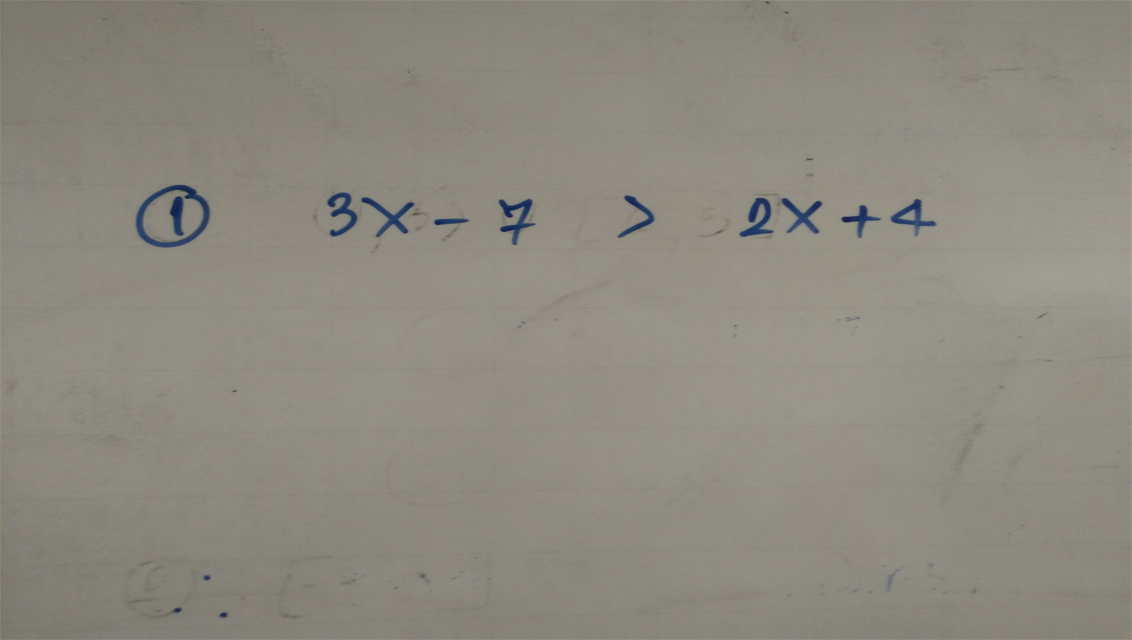 ① 3x - 7 > 2x + 4
∴